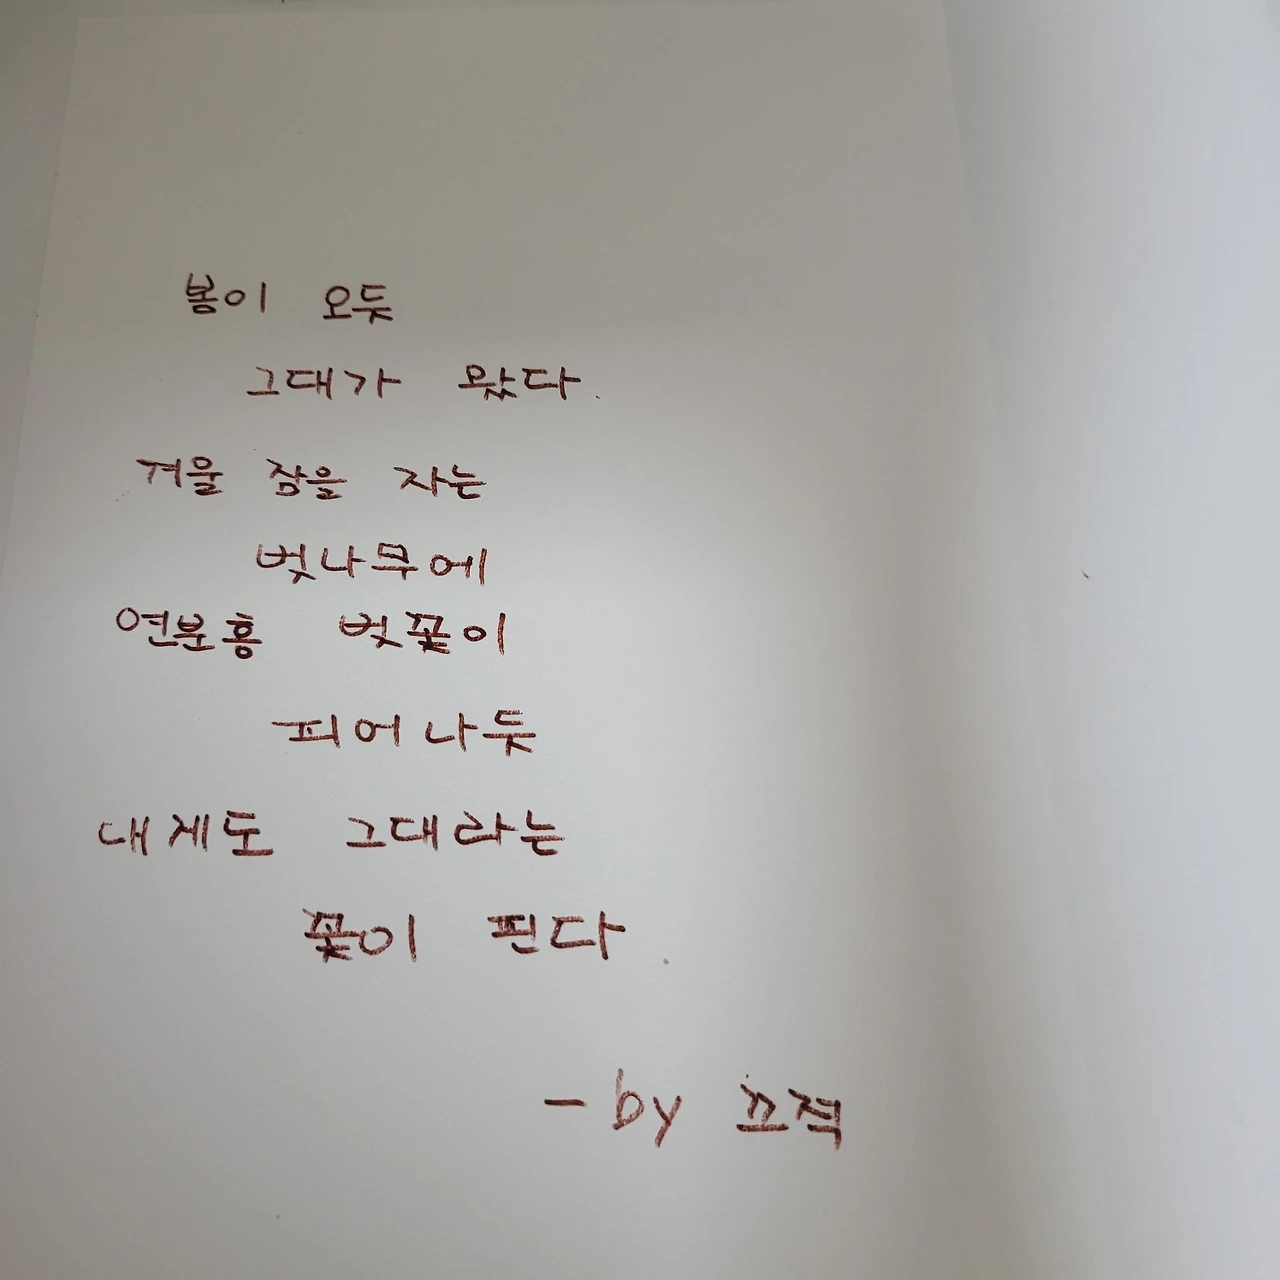 봄이 오듯
그대가 왔다.
겨울 잠을 자는
벚나무에
연분홍 벚꽃이
피어나듯
내게도 그대라는
꽃이 핀다.
- by 끄적